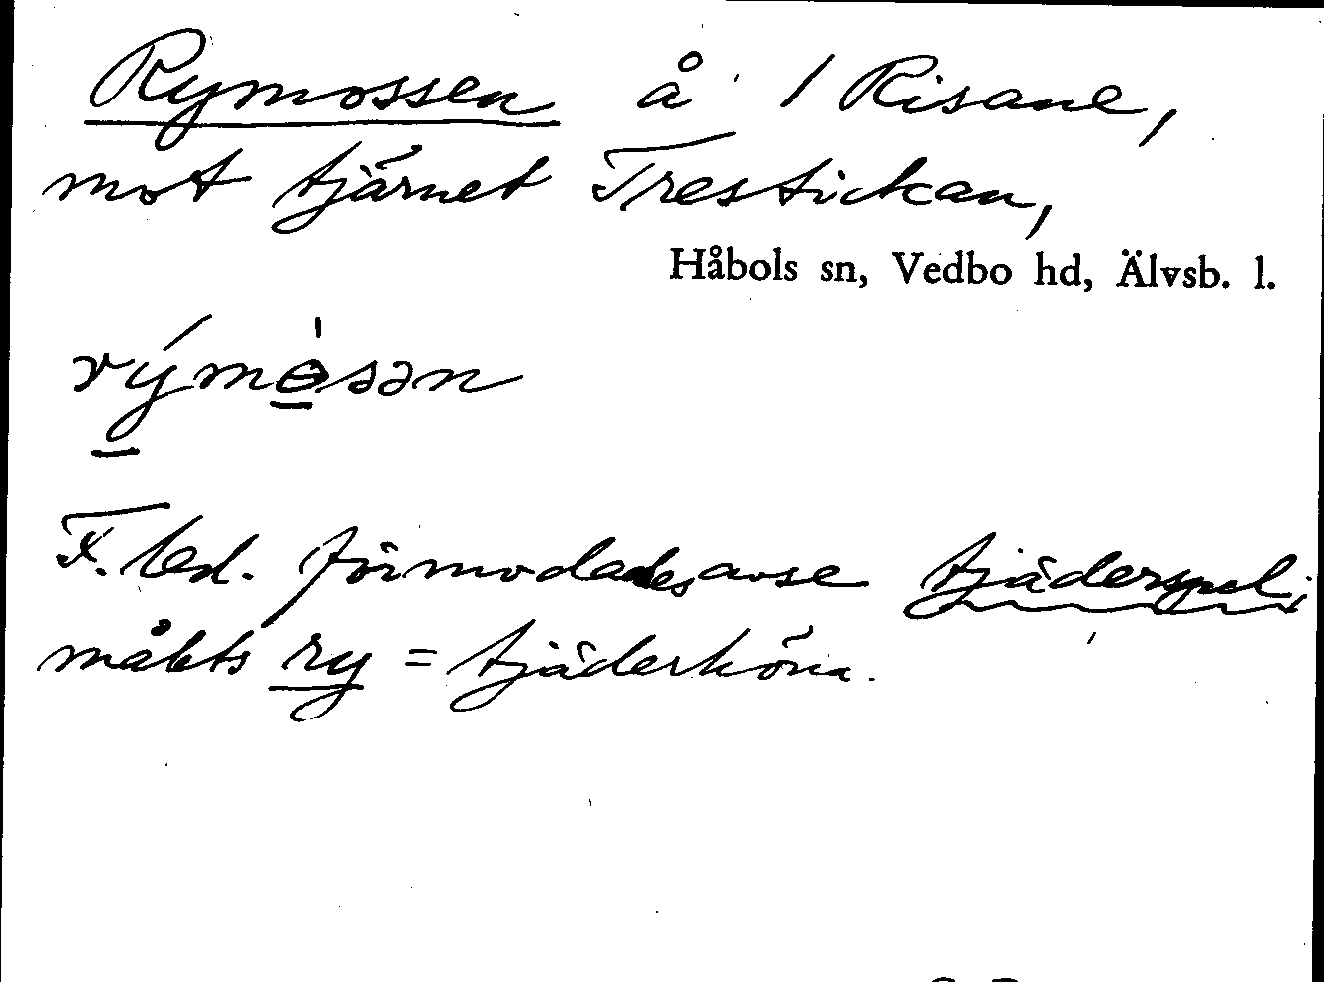 Rymossen å 1 Risane,
mot tjärnet Trestickan,
Håbols sn, Vedbo hd, Älvsb. l.
rýmòsən
F. led. förmodades avse tjäderspel;
måhts ry = tjäderhöna.